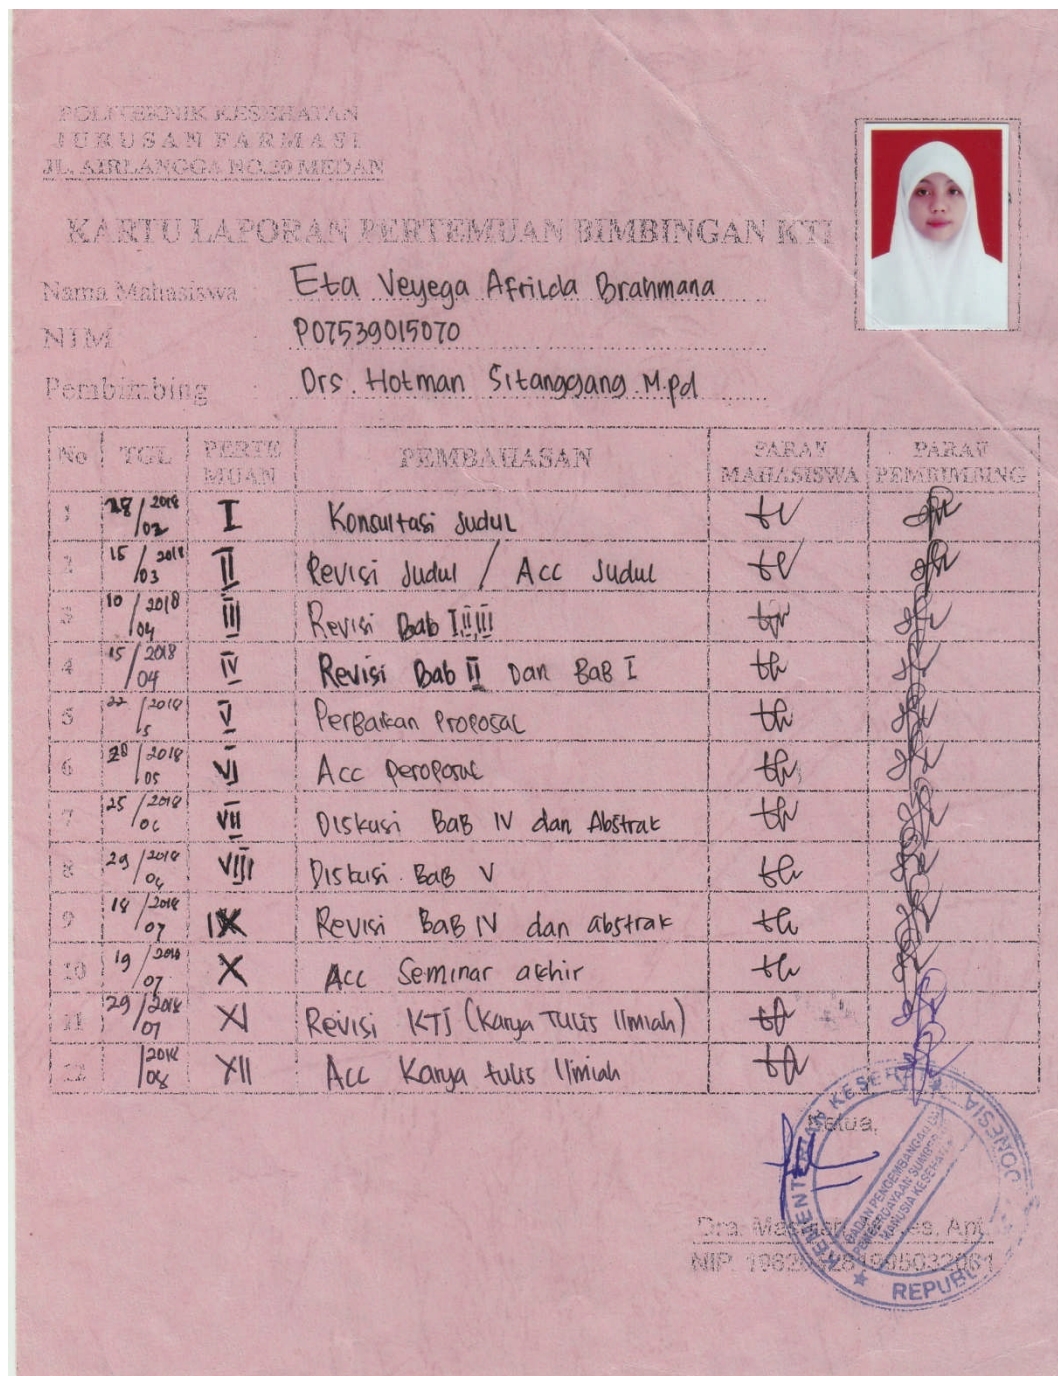 POLITEKNIK KESEHATAN
JURUSAN FARMASI
JL. AIRLANGGA NO.20 MEDAN
KARTU LAPORAN PERTEMUAN BIMBINGAN KTI
Nama Mahasiswa : Eta Veyega Afrilda Brahmana
NIM P07539015070
Pembimbing : Drs. Hotman Sitanggang M.pd
No TGL PERTEMUAN PEMBAHASAN PARAF MAHASISWA PARAF PEMBIMBING
1 28/2018 02 I Konsultasi Judul
2 15/2018 03 II Revisi Judul / Acc Judul
3 10/2018 04 III Revisi Bab I,II,III
4 15/2018 04 IV Revisi Bab II Dan BaB I
5 22/2018 5 V Perbaikan Proposal
6 28/2018 05 VI Acc Peroposal
7 25/2018 06 VII Diskusi BaB IV dan Abstrak
8 29/2018 VIII Diskusi BaB V
9 18/2018 07 IX Revisi BaB IV dan abstrak
10 19/2018 07 X Acc Seminar akhir
11 29/2018 07 XI Revisi KTI (Karya TULIS Ilmiah)
12 /2018 08 XII Acc Karya tulis Ilmiah
Ketua,
KEMENTERIAN KESEHATAN REPUBLIK INDONESIA
BADAN PENGEMBANGAN DAN
PEMBERDAYAAN SUMBER DAYA
MANUSIA KESEHATAN
Dra. Apt.
NIP.